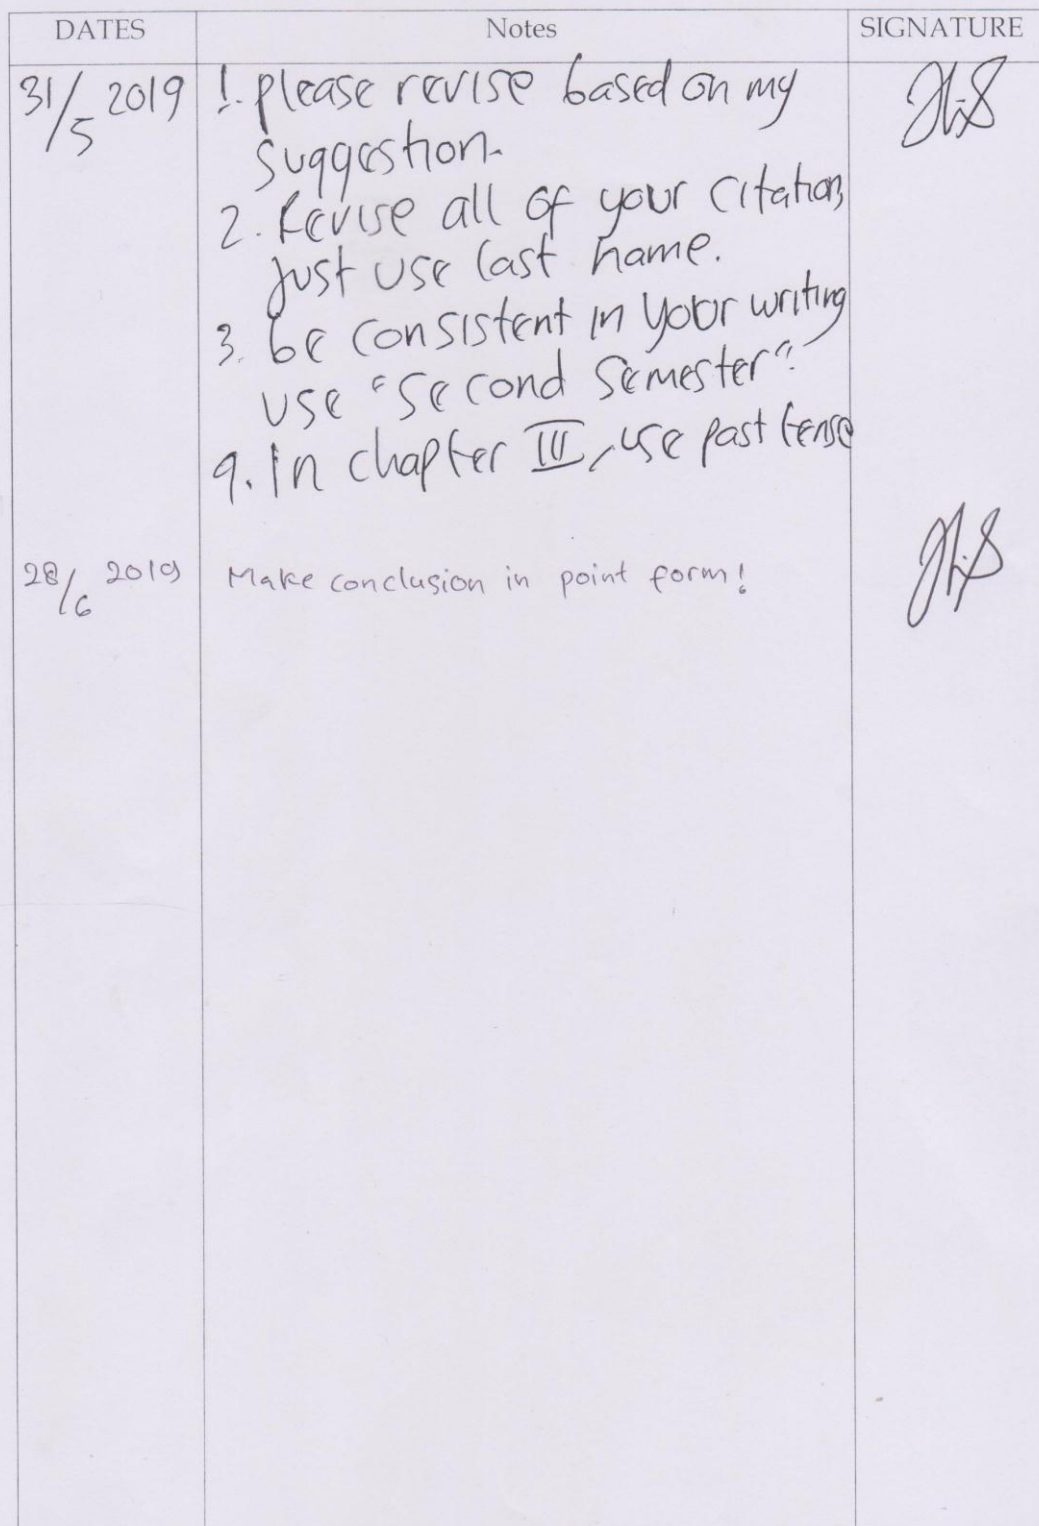 DATES Notes SIGNATURE
31/5 2019 1. please revise based on my
suggestion.
2. Revise all of your citation,
just use last name.
3. be consistent in your writing
use "Second Semester".
4. In chapter III, use past tense
28/6 2019 Make conclusion in point form!